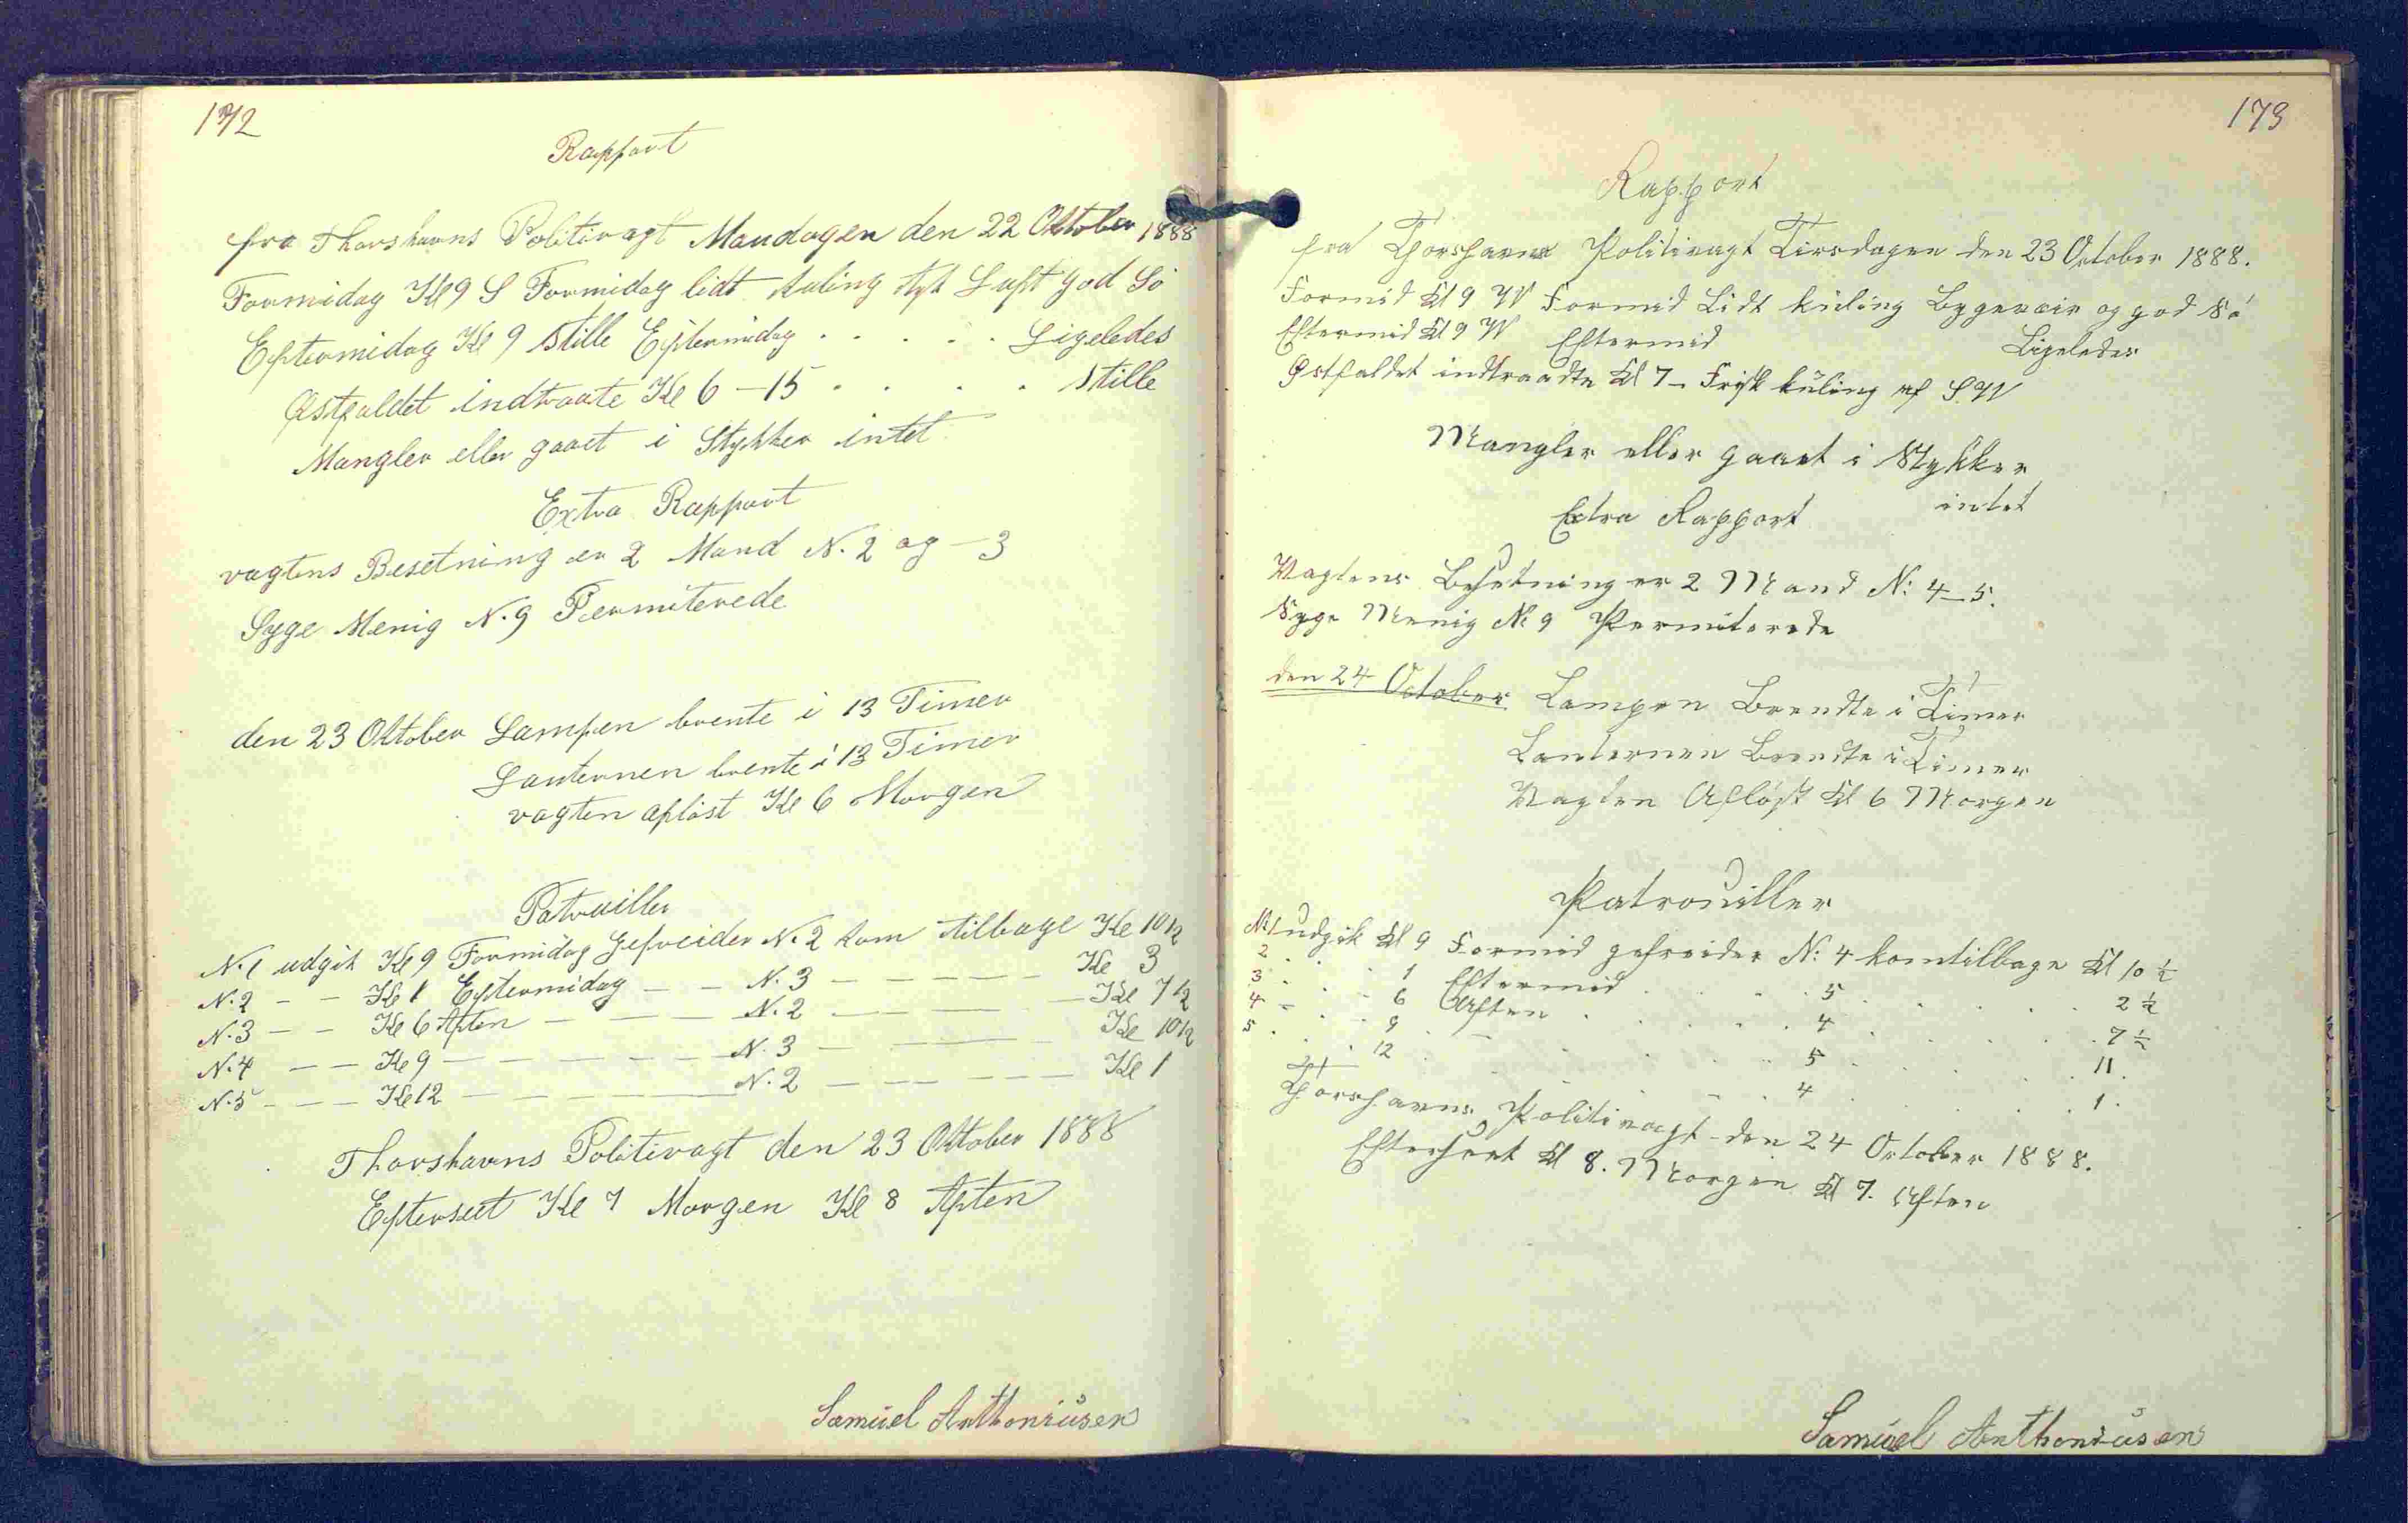 172
Rapport
fra Thorshavns Politivagt Mandagen den 22 Oktober 1888
Formidag Kl 9 S Formidag lidt Kuling tyk Luft god Sö
Eftermidag Kl 9 Stille Eftermidag . . . . . Ligeledes
Østfaldet indtraate Kl 6 – 15 . . . . Stille
Mangler eller gaaet i Stykker intet
Extra Rapport
vagtens Besetning er 2 Mand N. 2 og – 3
Syge Menig N. 9 Permiterede
den 23 Oktober Lampen brente i 13 Timer
Lanternen brente i 13 Timer
vagten afløst Kl 6 Morgen
Patruiller
N. 1 udgik Kl 9 Formidag Gefreider N. 2 kom tilbage Kl 10½
N. 2 – – Kl 1 Eftermidag – – N. 3 – – – – Kl 3
N. 3 – – Kl 6 Aften – – – N. 2 – – – – Kl 7½
N. 4 – – Kl 9 – – – – – N. 3 – – – Kl 10½
N. 5 – – – Kl 12 – – – – – N. 2 – – – – Kl 1
Thorshavns Politivagt den 23 Oktober 1888
Efterseet Kl 7 Morgen Kl 8 Aften
Samuel Anthoniusen
173
Rapport
fra Thorshavns Politivagt Tirsdagen den 23 October 1888.
Formid Kl 9 W Formid Lidt kuling Bygeveir og god Sö
Eftermid Kl 9 W Eftermid Ligeledes
Østfaldet indtraadte Kl 7 – Frisk kuling af S.W
Mangler eller gaaet i Stykker
intet
Extra Rapport
Vagtens Besetning er 2 Mand N: 4–5.
Syge Menig N: 9 Permiterede
den 24 October Lampen Brendte i Timer
Lanternen Brendte i Timer
Vagten Afløst Kl 6 Morgen
Patrouiller
N: 1 udgik Kl 9 Formid gefreider N: 4 kom tilbage Kl 10 ½
2 . . . 1 Eftermid . . . . 5 . . . . . 2 ½
3 . . . 6 Aften . . . . . 4 . . . . . 7 ½
4 – . . 9 . – . . . . . 5 . . . . . 11.
5 . . . 12 . . . . . . 4 . . . . . 1.
Thorshavns Politivagt den 24 October 1888.
Efterseet Kl 8. Morgen Kl 7. Aften
Samuel Anthoniusen